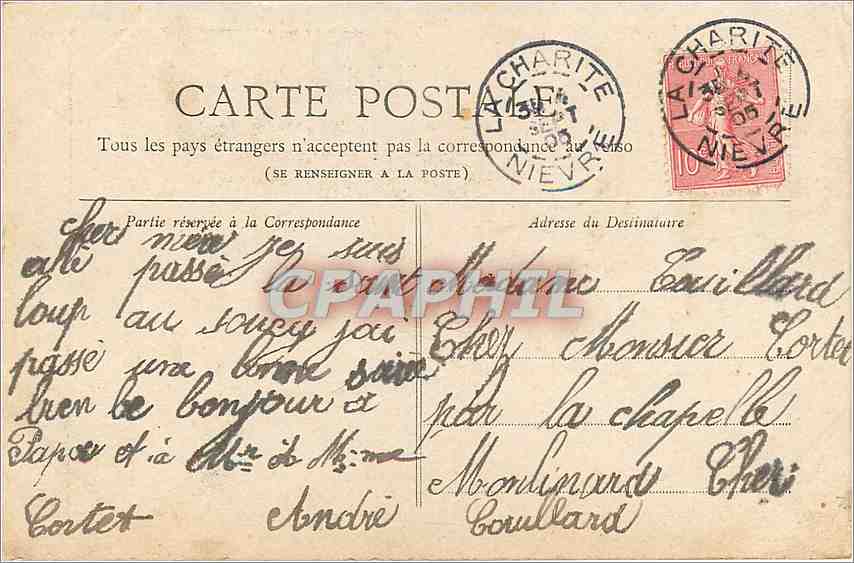 CARTE POSTALE
Tous les pays étrangers n'acceptent pas la correspondance au verso
(SE RENSEIGNER A LA POSTE)
LA CHARITE
SEPT
05
NIEVRE
LA CHARITE
SEPT
05
NIEVRE
10
Partie réservée à la Correspondance
cher mère je suis
allé passé la saint
loup au soucy jai
passé une bonne soirée
bien le bonjour a
Papa et à Mr et Mme
Cortet André
Adresse du Destinataire
Madame Couillard
Chez Monsier Cortet
par la chapelle
Monlinard Cher
Couillard
CPAPHIL